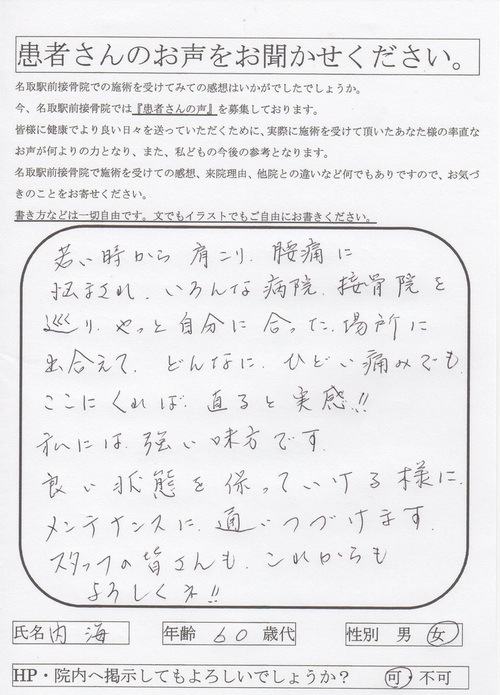 患者さんのお声をお聞かせください。
名取駅前接骨院での施術を受けてみての感想はいかがでしたでしょうか。
今、名取駅前接骨院では『患者さんの声』を募集しております。
皆様に健康でより良い日々を送っていただくために、実際に施術を受けて頂いたあなた様の率直な
お声が何よりの力となり、また、私どもの今後の参考となります。
名取駅前接骨院で施術を受けての感想、来院理由、他院との違いなど何でもありですので、お気づ
きのことをお寄せください。
書き方などは一切自由です。文でもイラストでもご自由にお書きください。
若い時から 肩こり、腰痛に
悩まされ、いろんな病院、接骨院を
巡り、やっと自分に合った場所に
出合えて、どんなに、ひどい痛みでも
ここにくれば、直ると実感!!
私には、強い味方です。
良い状態を保っていける様に、
メンテナンスに、通いつづけます。
スタッフの皆さんも、これからも
よろしくネ!!
氏名 内海 年齢 60 歳代 性別 男 女
HP・院内へ掲示してもよろしいでしょうか? 可・不可